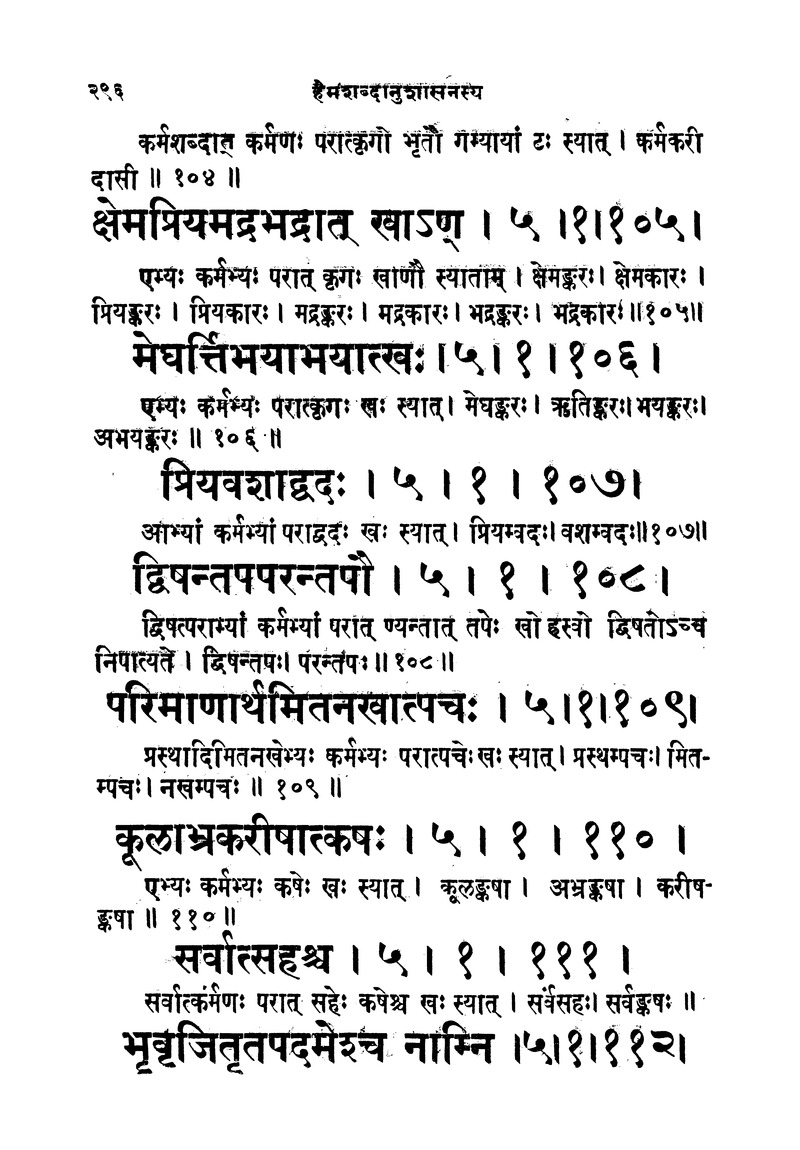 २९६ हैमशब्दानुशासनस्य
कर्मशब्दात् कर्मणः परात्कृगो भृतौ गम्यायां टः स्यात् । कर्मकरी
दासी ॥ १०४ ॥
क्षेमप्रियमद्रभद्रात् खाऽण् । ५ ।१।१०५।
एभ्यः कर्मभ्यः परात् कृगः खाणौ स्याताम् । क्षेमङ्करः। क्षेमकारः ।
प्रियङ्करः । प्रियकारः । मद्रङ्करः । मद्रकारः । भद्रङ्करः । भद्रकारः॥१०५॥
मेघर्त्तिभयाभयात्खः ।५। १ ।१०६ ।
एभ्यः कर्मभ्यः परात्कृगः खः स्यात् । मेघङ्करः । ऋतिङ्करः। भयङ्करः।
अभयङ्करः ॥ १०६ ॥
प्रियवशाद्वदः । ५ । १ । १०७।
आभ्यां कर्मभ्यां पराद्वदः खः स्यात् । प्रियम्वदः। वशम्वदः॥१०७॥
द्विषन्तपपरन्तपौ । ५ । १ । १०८ ।
द्विषत्पराभ्यां कर्मभ्यां परात् ण्यन्तात् तपेः खो ह्रस्वो द्विषतोऽच्च
निपात्यते । द्विषन्तपः। परन्तपः ॥ १०८ ॥
परिमाणार्थमितनखात्पचः । ५।१।१०९।
प्रस्थादिमितनखेभ्यः कर्मभ्यः परात्पचेः खः स्यात् । प्रस्थम्पचः। मित-
म्पचः। नखम्पचः ॥ १०९ ॥
कूलाभ्रकरीषात्कषः । ५ । १ । ११० ।
एभ्यः कर्मभ्यः कषेः खः स्यात् । कूलङ्कषा । अभ्रङ्कषा । करीष-
ङ्कषा ॥ ११० ॥
सर्वात्सहश्च । ५ । १ । १११ ।
सर्वात्कर्मणः परात् सहेः कषेश्च खः स्यात् । सर्वसहः। सर्वङ्कषः ॥
भृवृजितृतपदमेश्च नाम्नि ।५।१।११२।